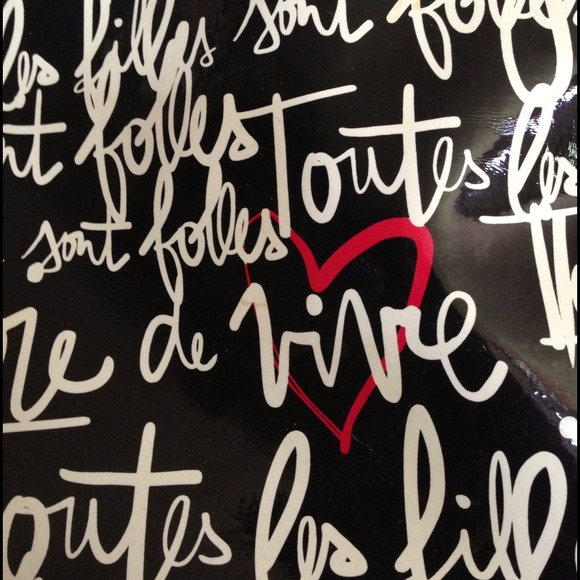 les filles sont folles
nt folles Toutes les
sont folles
re de vivre
outes les fill